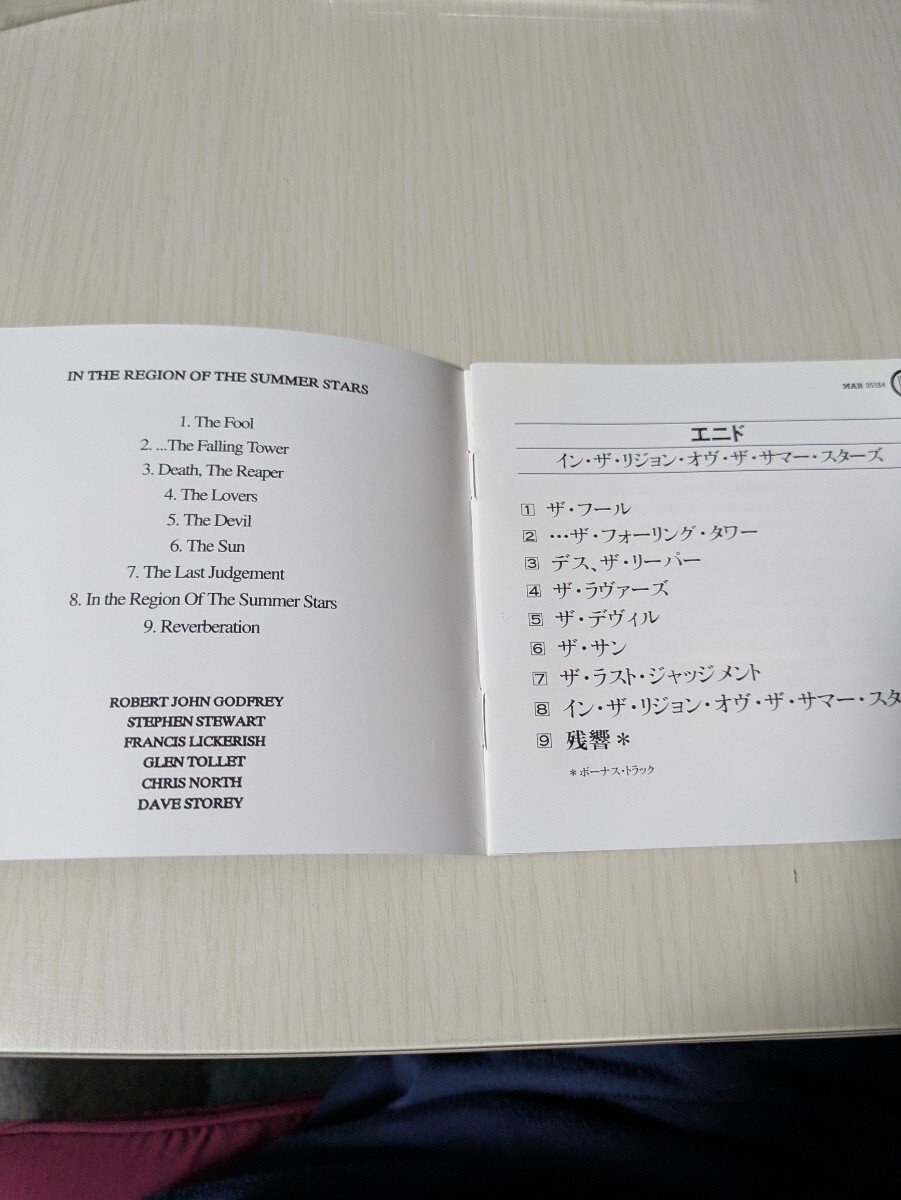 IN THE REGION OF THE SUMMER STARS
1. The Fool
2. ...The Falling Tower
3. Death, The Reaper
4. The Lovers
5. The Devil
6. The Sun
7. The Last Judgement
8. In the Region Of The Summer Stars
9. Reverberation
ROBERT JOHN GODFREY
STEPHEN STEWART
FRANCIS LICKERISH
GLEN TOLLET
CHRIS NORTH
DAVE STOREY
MAR 95184
エニド
イン・ザ・リジョン・オヴ・ザ・サマー・スターズ
1 ザ・フール
2 …ザ・フォーリング・タワー
3 デス、ザ・リーパー
4 ザ・ラヴァーズ
5 ザ・デヴィル
6 ザ・サン
7 ザ・ラスト・ジャッジメント
8 イン・ザ・リジョン・オヴ・ザ・サマー・スタ
9 残響＊
＊ボーナス・トラック